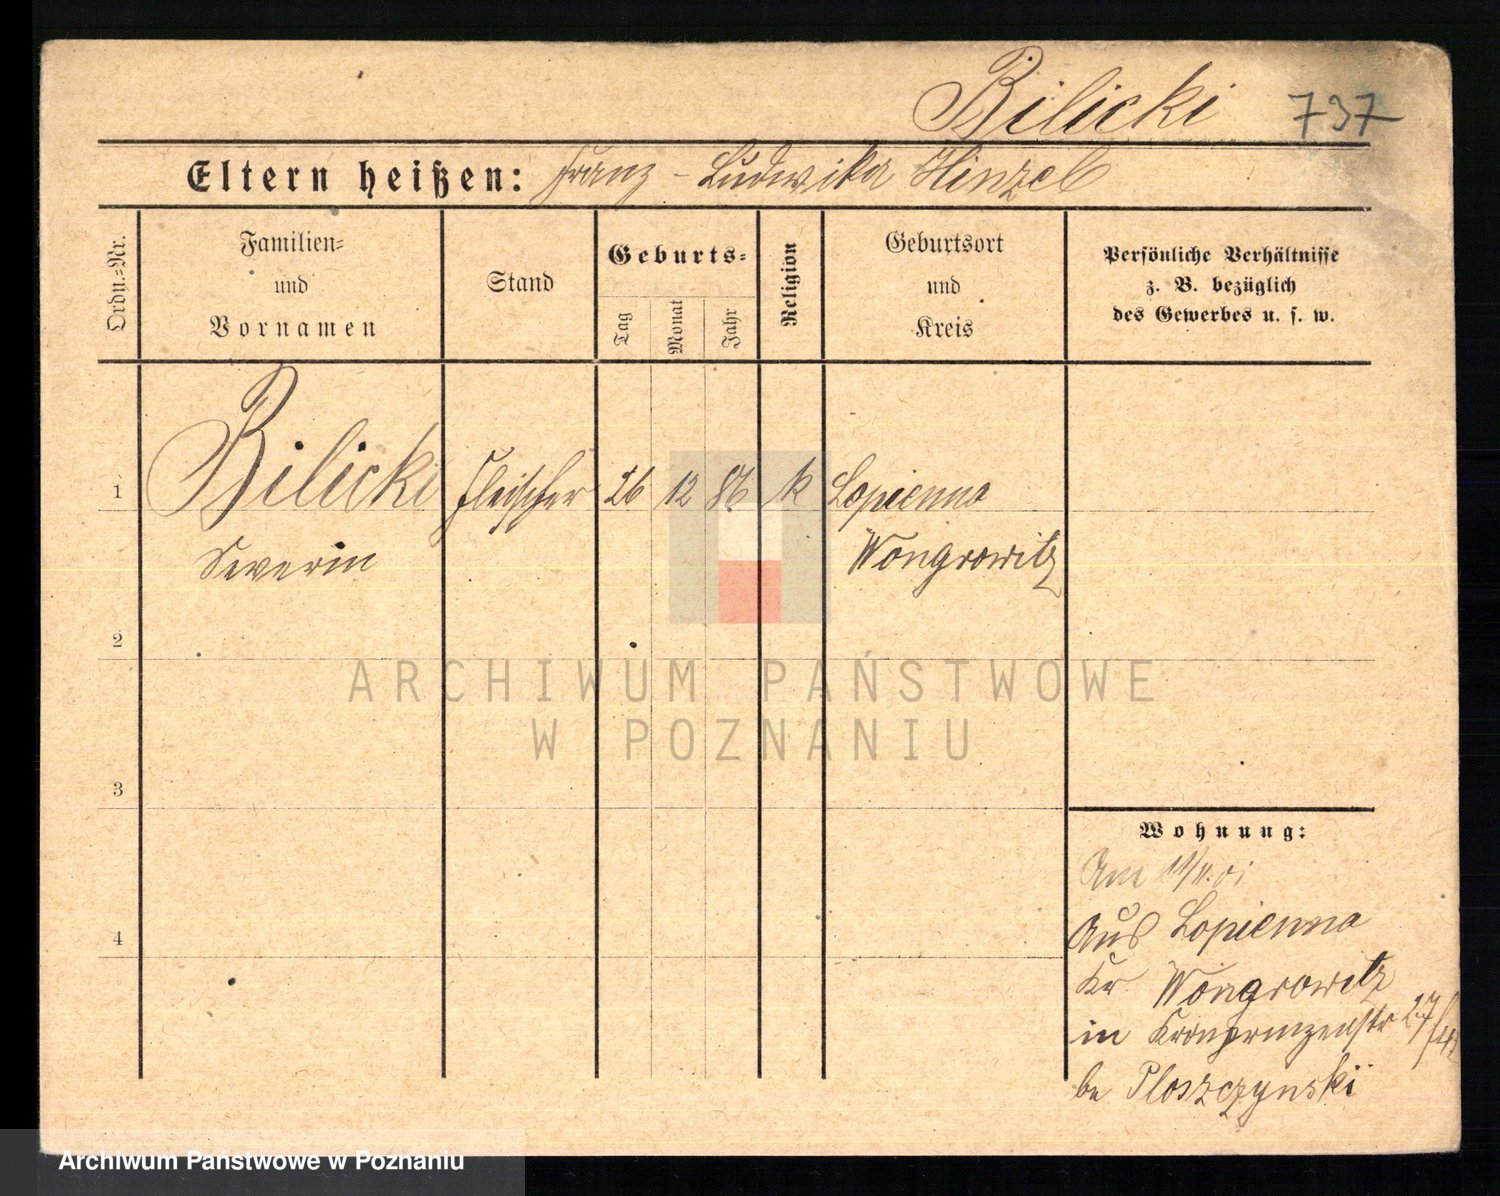 Bilicki 737
Eltern heißen: Franz - Ludwika Hinzel
Ordn.=Nr.
Familien=
und
Vornamen
Stand
Geburts=
Tag
Monat
Jahr
Religion
Geburtsort
und
Kreis
Persönliche Verhältnisse
z. B. bezüglich
des Gewerbes u. s. w.
1 Bilicki Fleischer 26 12 86 k Lopienno
Severin Wongrowitz
2
3
4
Wohnung:
Am
Aus Lopienno
Kr Wongrowitz
in Kronprinzenstr
be Ploszczynski
ARCHIWUM PAŃSTWOWE
W POZNANIU
Archiwum Państwowe w Poznaniu